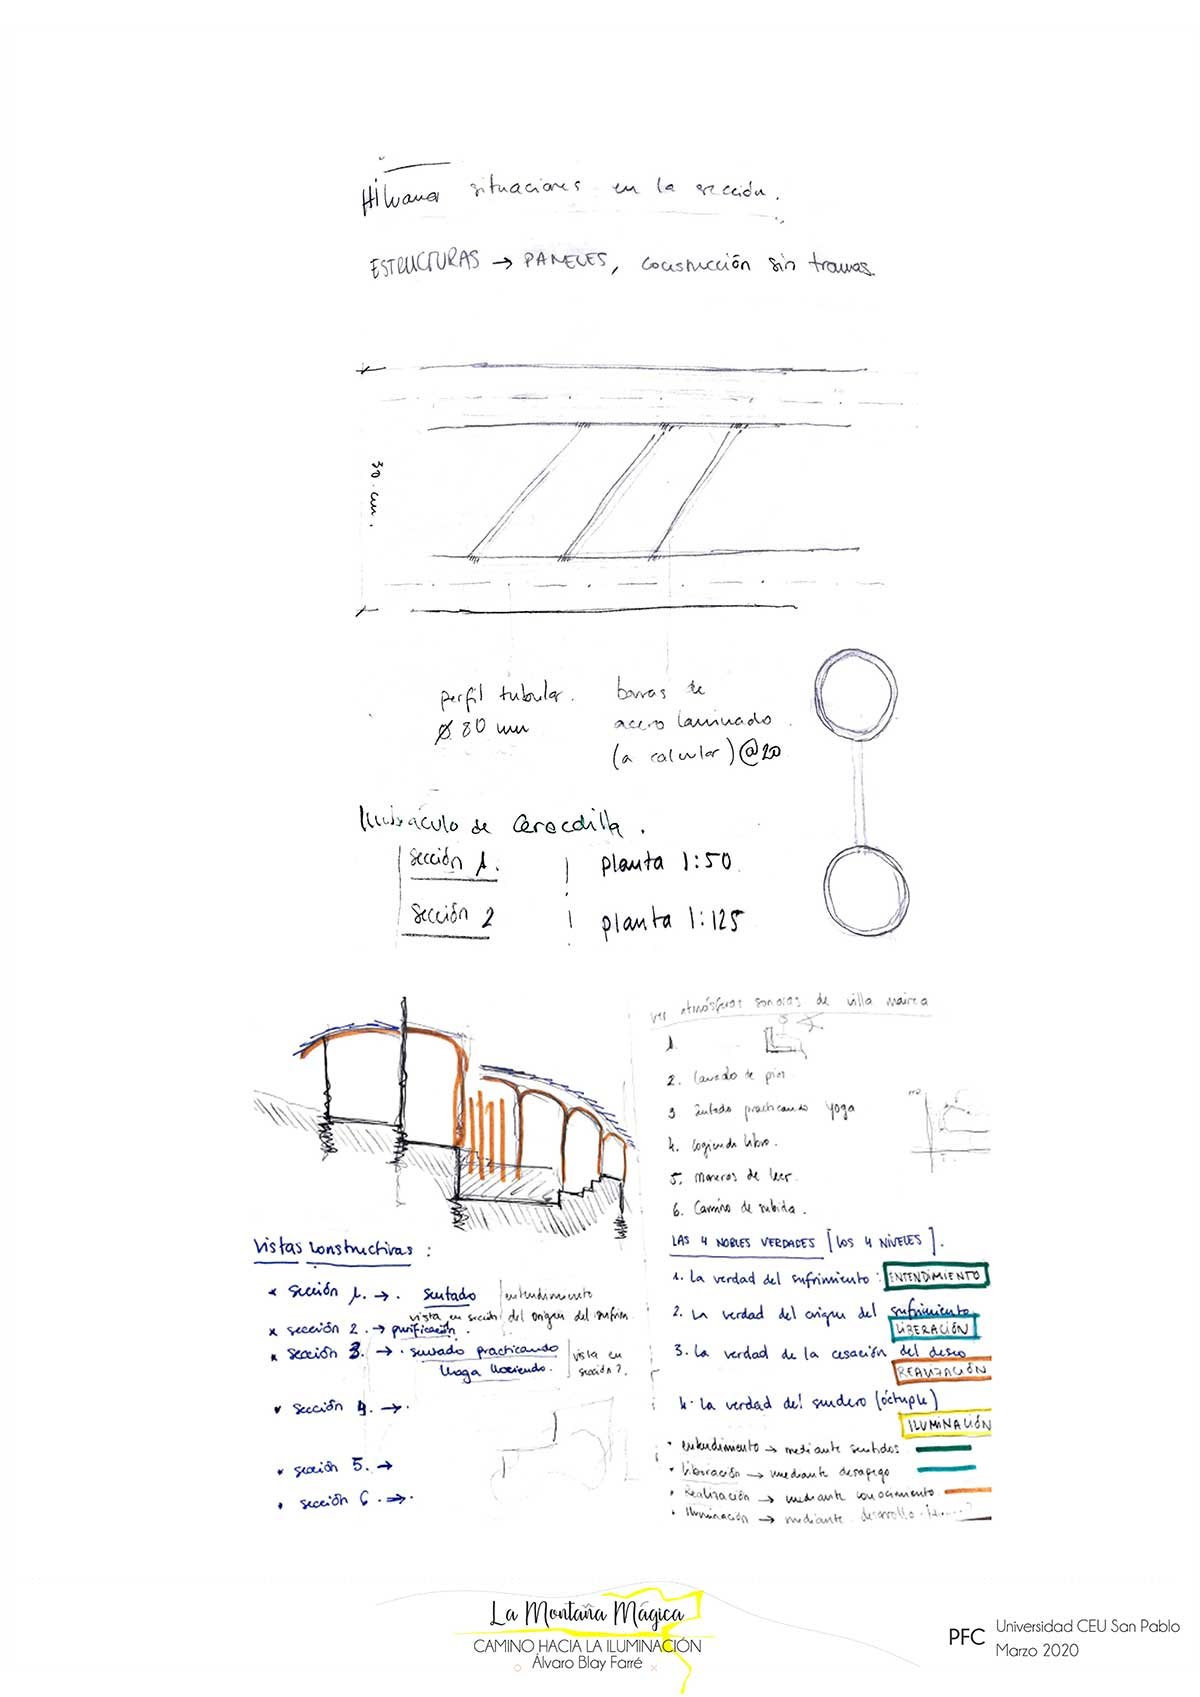 Hilvanar situaciones en la sección.
ESTRUCTURAS → PANELES, construcción sin tramas.
30 cm.
perfil tubular.
Ø 80 mm
barras de
acero laminado.
(a calcular) @20
Umbráculo de Cerecdilla.
sección 1. planta 1:50.
sección 2 planta 1:125
ver atmósferas sonoras de villa mairea
1.
2. lavado de pies.
3 sentado practicando yoga
4. cogiendo libro.
5. maneras de leer.
6. Camino de subida.
LAS 4 NOBLES VERDADES [LOS 4 NIVELES].
1. La verdad del sufrimiento: ENTENDIMIENTO
2. La verdad del origen del sufrimiento
LIBERACIÓN
3. La verdad de la cesación del deseo
REALIZACIÓN
4. La verdad del sendero (óctuple)
ILUMINACIÓN
• entendimiento → mediante sentidos
• liberación → mediante desapego
• Realización → mediante conocimiento
• Iluminación → mediante desarrollo
Vistas constructivas:
x sección 1. → . sentado entendimiento
vista en sección del origen del sufrim.
x sección 2. → purificación.
x sección 3. → . sentado practicando
Yoga haciendo.
vista en
sección 2.
sección 4. → .
sección 5. →
sección 6. → .
La Montaña Mágica
CAMINO HACIA LA ILUMINACIÓN
Álvaro Blay Farré
PFC
Universidad CEU San Pablo
Marzo 2020